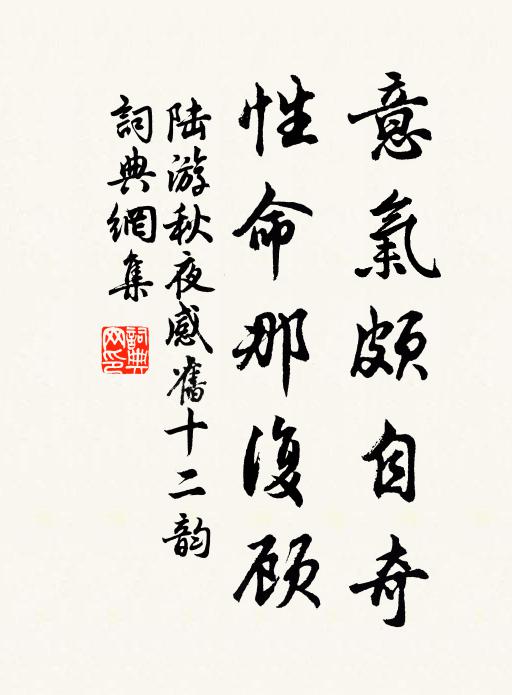 意氣頗自奇
性命那復顾
陆游秋夜感奮十二韵
詞典網集
詞典網印